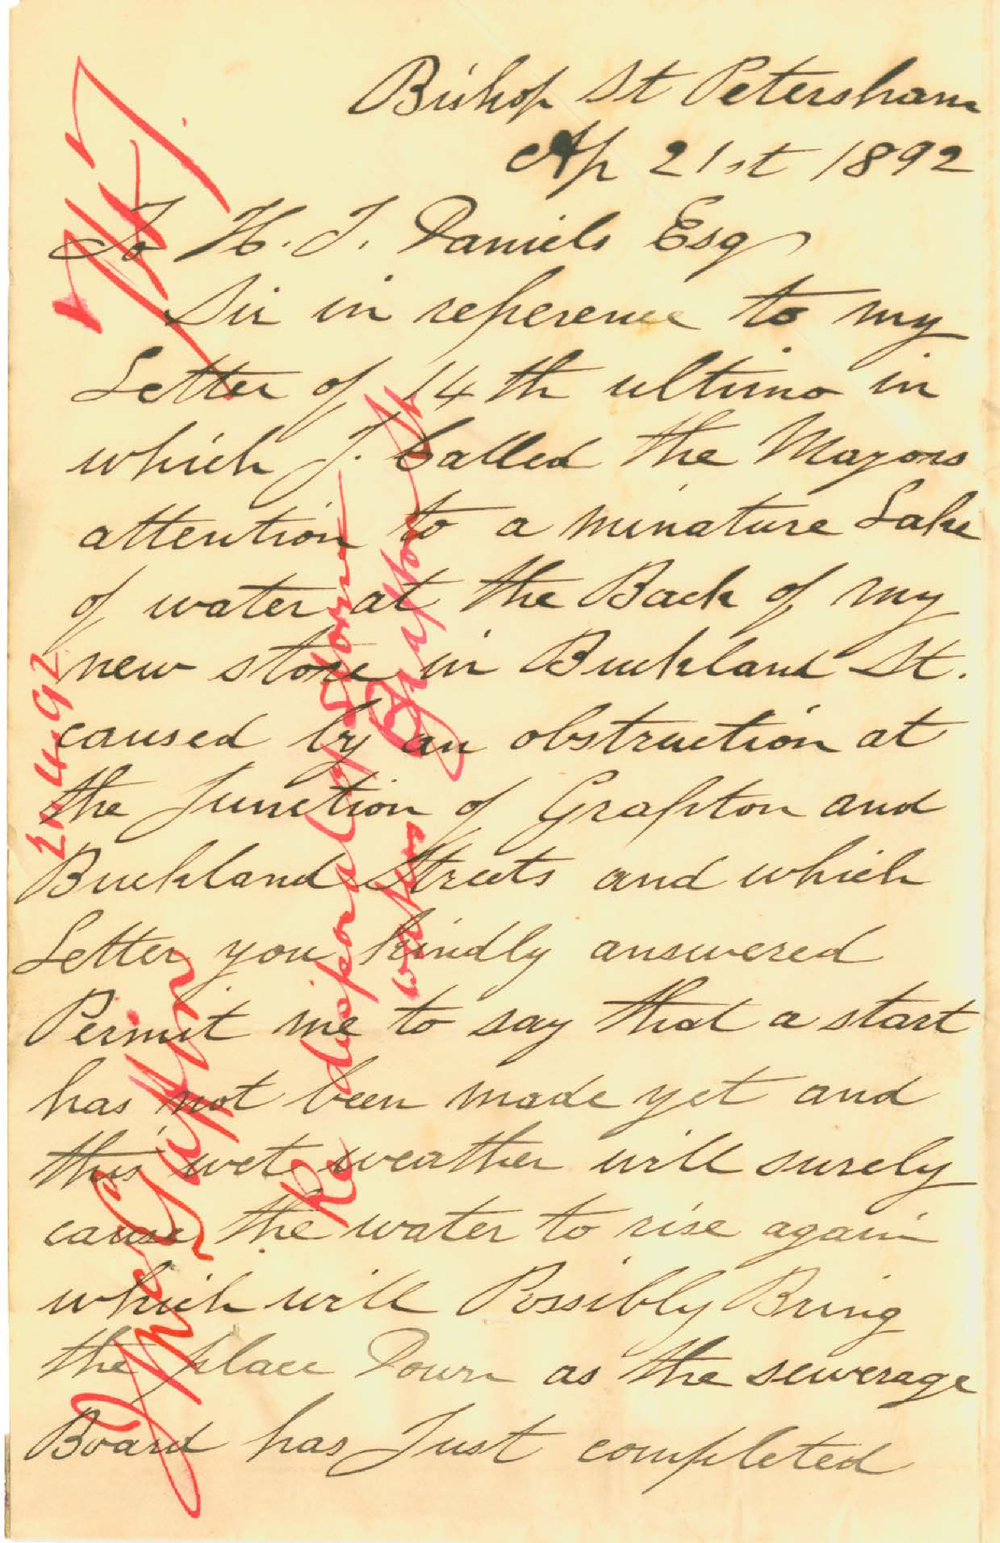 Bishop St Petersham
Ap 21st 1892
To H. J. Daniels Esq
Sir in reference to my
Letter of 14th ultimo in
which I. Called the Mayors
attention to a minature Lake
of water at the Back of my
new store in Buckland St.
caused by an obstruction at
the Junction of Grafton and
Buckland Streets and which
Letter you kindly answered
Permit me to say that a start
has not been made yet and
this wet weather will surely
cause the water to rise again
which will Possibly Bring
the place Down as the sewerage
Board has Just completed
J McGaffin
Re disposal of Storm
water Grafton St
21.4.92